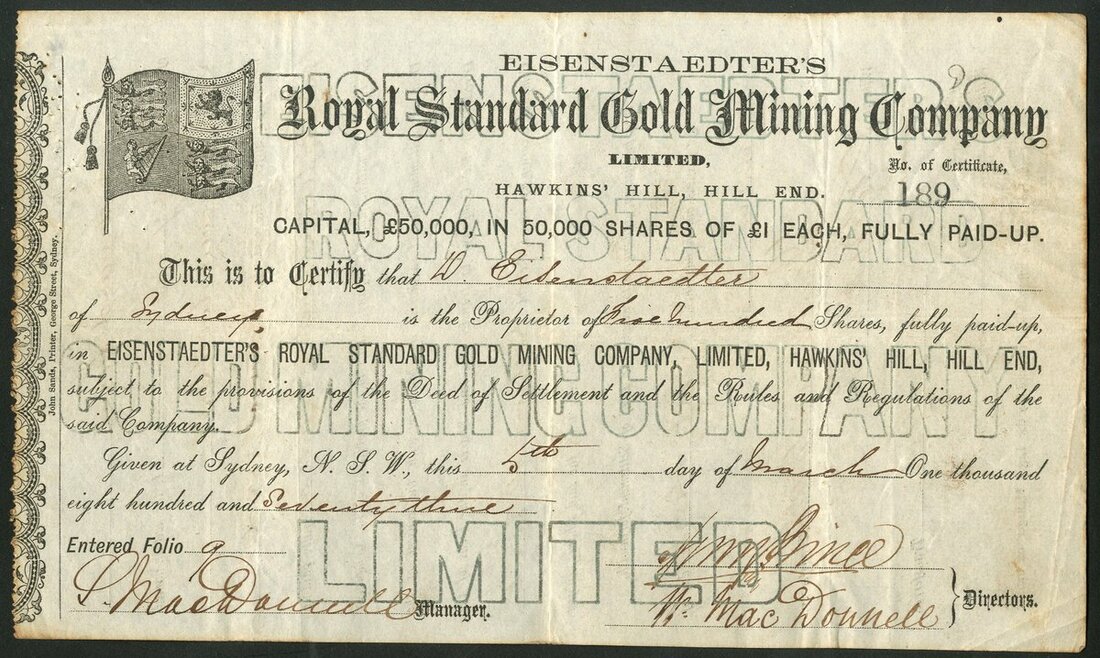 EISENSTAEDTER'S
Royal Standard Gold Mining Company
LIMITED,
No. of Certificate,
189
HAWKINS' HILL, HILL END.
CAPITAL, £50,000, IN 50,000 SHARES OF £1 EACH, FULLY PAID-UP.
This is to Certify that D. Eisenstaedter
of Sydney is the Proprietor of Five hundred Shares, fully paid-up,
in EISENSTAEDTER'S ROYAL STANDARD GOLD MINING COMPANY, LIMITED, HAWKINS' HILL, HILL END,
subject to the provisions of the Deed of Settlement and the Rules and Regulations of the
said Company.
Given at Sydney, N. S. W., this 5th day of March One thousand
eight hundred and Seventy three
Entered Folio 9
S. MacDonnell Manager.
Wm
W. MacDonnell Directors.
John Sands, Printer, George Street, Sydney.
EISENSTAEDTER'S
ROYAL STANDARD
GOLD MINING COMPANY
LIMITED